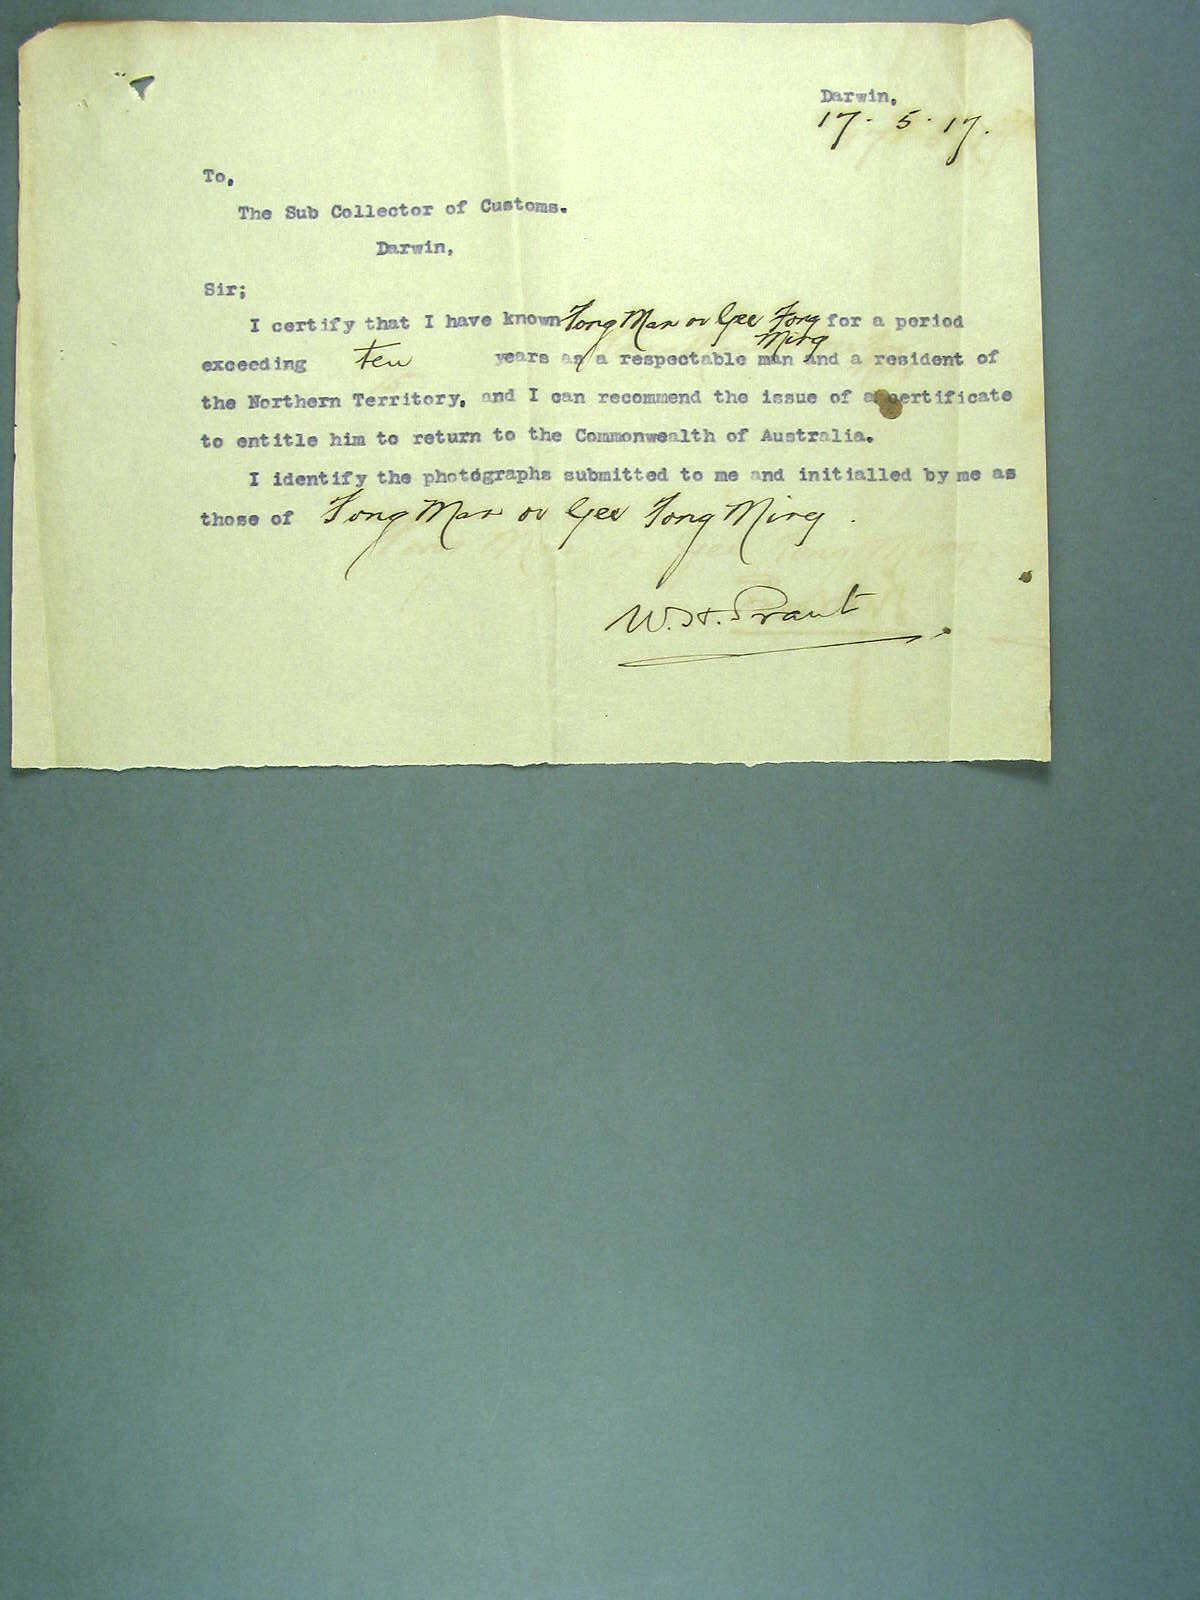 Darwin.
17. 5. 17.
To,
The Sub Collector of Customs.
Darwin,
Sir;
I certify that I have known Fong Man or Gee Fong for a period
Ming
exceeding Ten years as a respectable man and a resident of
the Northern Territory, and I can recommend the issue of a certificate
to entitle him to return to the Commonwealth of Australia.
I identify the photographs submitted to me and initialled by me as
those of Fong Man or Gee Fong Ming.
W. H.